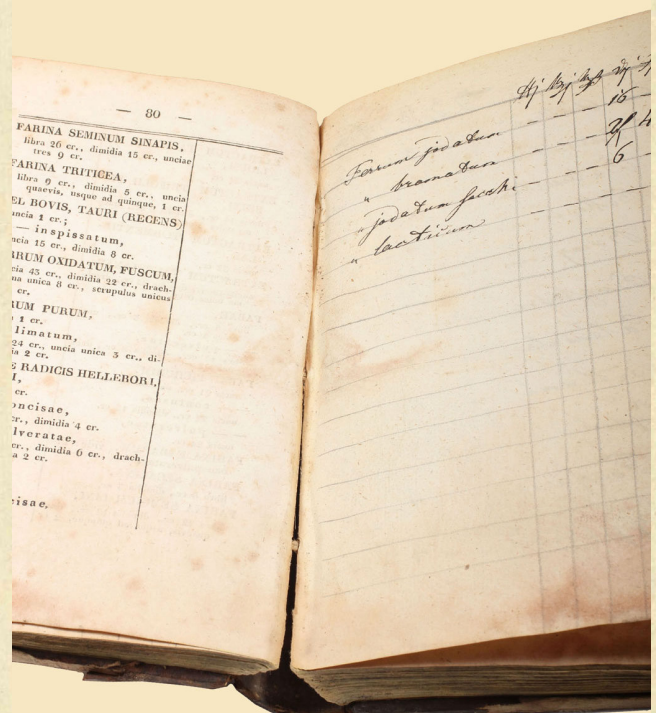 — 80 —
FARINA SEMINUM SINAPIS,
libra 26 cr., dimidia 15 cr., unciae
tres 9 cr.
FARINA TRITICEA,
libra 9 cr., dimidia 5 cr., uncia
quaevis, usque ad quinque, 1 cr.
EL BOVIS, TAURI (RECENS)
uncia 1 cr.;
— inspissatum,
ncia 15 cr., dimidia 8 cr.
RRUM OXIDATUM, FUSCUM,
cia 43 cr., dimidia 22 cr., drach-
ma unica 8 cr., scrupulus unicus
cr.
RUM PURUM,
1 cr.
limatum,
24 cr., uncia unica 3 cr., di-
ia 2 cr.
S RADICIS HELLEBORI,
I,
cr.
oncisae,
cr., dimidia 4 cr.
lveratae,
cr., dimidia 6 cr., drach-
a 2 cr.
cisae,
Ferrum jodatum — — — 16
" bromatum — — —
" jodatum sacch: — — — 6
" lacticum — — —